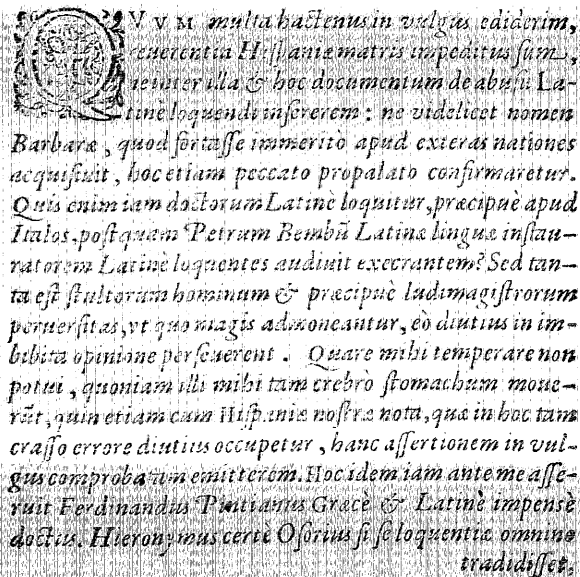 QVVM multa hactenus in vulgus ediderim,
reuerentia Hispaniæ matris impeditus sum,
ne inter illa & hoc documentum de abusu La-
tinè loquendi insererem: ne videlicet nomen
Barbaræ, quod fortasse immeritò apud exteras nationes
acquisiuit, hoc etiam peccato propalato confirmaretur.
Quis enim iam doctorum Latinè loquitur, præcipuè apud
Italos, postquam Petrum Bembũ Latinæ linguæ instau-
ratorem Latinè loquentes audiuit execrantem? Sed tan-
ta est stultorum hominum & præcipuè ludimagistrorum
peruersitas, vt quo magis admoneantur, eò diutius in im-
bibita opinione perseuerent. Quare mihi temperare non
potui, quoniam illi mihi tam crebrò stomachum moue-
rũt, quin etiam cum Hispaniæ nostræ nota, quæ in hoc tam
crasso errore diutius occupetur, hanc assertionem in vul-
gus comprobatam emitterem. Hoc idem iam ante me asse-
ruit Ferdinandus Pintianus Græcè & Latinè impensè
doctus. Hieronymus certè Osorius si se loquentiæ omnino
tradidisset,